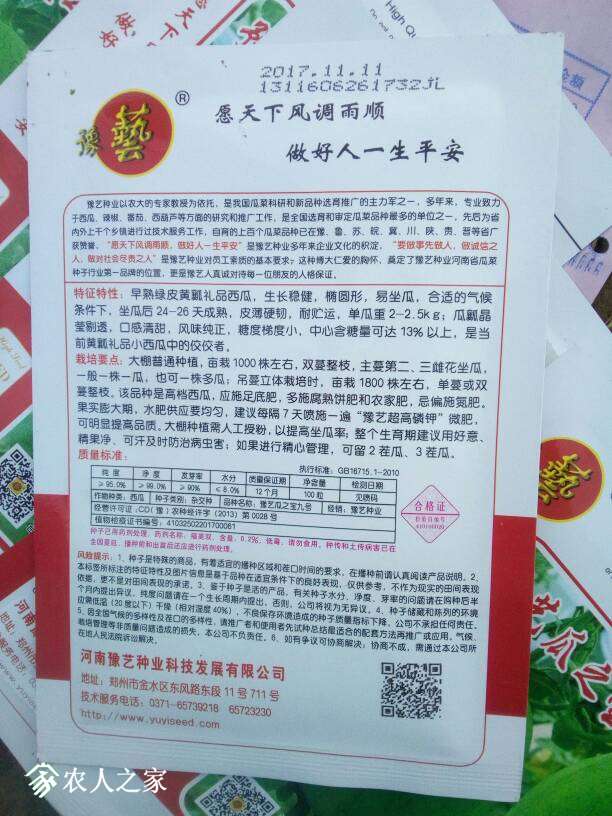 2017.11.11
1311606261732JL
豫藝
®
愿天下风调雨顺
做好人一生平安
豫艺种业以农大的专家教授为依托，是我国瓜菜科研和新品种选育推广的主力军之一，多年来，专业致力
于西瓜、辣椒、番茄、西葫芦等方面的研究和推广工作，是全国选育和审定瓜菜品种最多的单位之一，先后为省
内外上千个乡镇进行过技术服务工作，自育的上百个瓜菜品种已在豫、鲁、苏、皖、冀、川、陕、贵、晋等省广
获赞誉。“愿天下风调雨顺，做好人一生平安”是豫艺种业多年来企业文化的积淀，“要做事先做人，做诚信之
人，做对社会尽责之人”是豫艺种业对员工素质的基本要求；这种博大仁爱的胸怀，奠定了豫艺种业河南省瓜菜
种子行业第一品牌的位置，更是豫艺人真诚对待每一位朋友的人格保证。
特征特性：早熟绿皮黄瓤礼品西瓜，生长稳健，椭圆形，易坐瓜，合适的气候
条件下，坐瓜后24-26天成熟，皮薄硬韧，耐贮运，单瓜重2-2.5kg；瓜瓤晶
莹剔透，口感清甜，风味纯正，糖度梯度小，中心含糖量可达13%以上，是当
前黄瓤礼品小西瓜中的佼佼者。
栽培要点：大棚普通种植，亩栽1000株左右，双蔓整枝，主蔓第二、三雌花坐瓜，
一般一株一瓜，也可一株多瓜；吊蔓立体栽培时，亩栽1800株左右，单蔓或双
蔓整枝，该品种是高档西瓜，应施足底肥，多施腐熟饼肥和农家肥，忌偏施氮肥。
果实膨大期，水肥供应要均匀，建议每隔7天喷施一遍“豫艺超高磷钾”微肥，
可明显提高品质，大棚种植需人工授粉，以提高坐瓜率；整个生育期建议用好意、
精果净、可汗及时防治病虫害；如果进行精心管理，可留2茬瓜、3茬瓜。
质量标准：
执行标准：GB16715.1-2010
纯度 净度 发芽率 水分 质量保证期 净含量 检测日期
≥95.0% ≥99.0% ≥90% ≤8.0% 12个月 100粒 见喷码
作物种类：西瓜 种子类别：杂交种 品种名称：豫艺瓜之宝九号 经销：豫艺种业
经营许可证：CD（豫）农种经许字（2013）第0028号
植物检疫证书编号：4103250220170​0081
合格证
检验员编号
410100020
种子已用药剂处理，药剂名称：福美双，含量：0.2%，低毒，请勿食用，种传和土传病害已在
全国蔓延，播种前和出苗后还应进行药剂处理。
风险提示：1、种子是特殊的商品，有着适宜的播种区域和茬口时间的要求，在播种前请认真阅读产品说明。2、
本标签所标注的特征特性及图片信息是基于品种在适宜条件下的良好表现，仅供参考，不作为现实的田间表现
依据，更不是对田间表现的承诺。3、鉴于种子是活的产品，有关种子水分、净度、芽率的问题请在购种后半
个月内提出异议，纯度问题请在一个生长周期内提出，否则，公司将视为无异议。4、种子储藏和陈列的环境
应需低温（20度以下）干燥（相对湿度40%），不保保存环境造成的种子质量指标下降，公司不承担任何责任。
5、因全国气候的多样性及茬口的多样性，请推广者和使用者先试种总结最适合的配套方法再推广或应用，气候、
栽培管理等非质量问题造成的损失，本公司不负责任。6、如有争议可协商解决，协商不成，需通过本公司所
在地人民法院诉讼解决。
河南豫艺种业科技发展有限公司
地址：郑州市金水区东风路东段11号711号
技术服务电话：0371-65739218 65723230
http://www.yuyiseed.com
农人之家
High Qu
藝